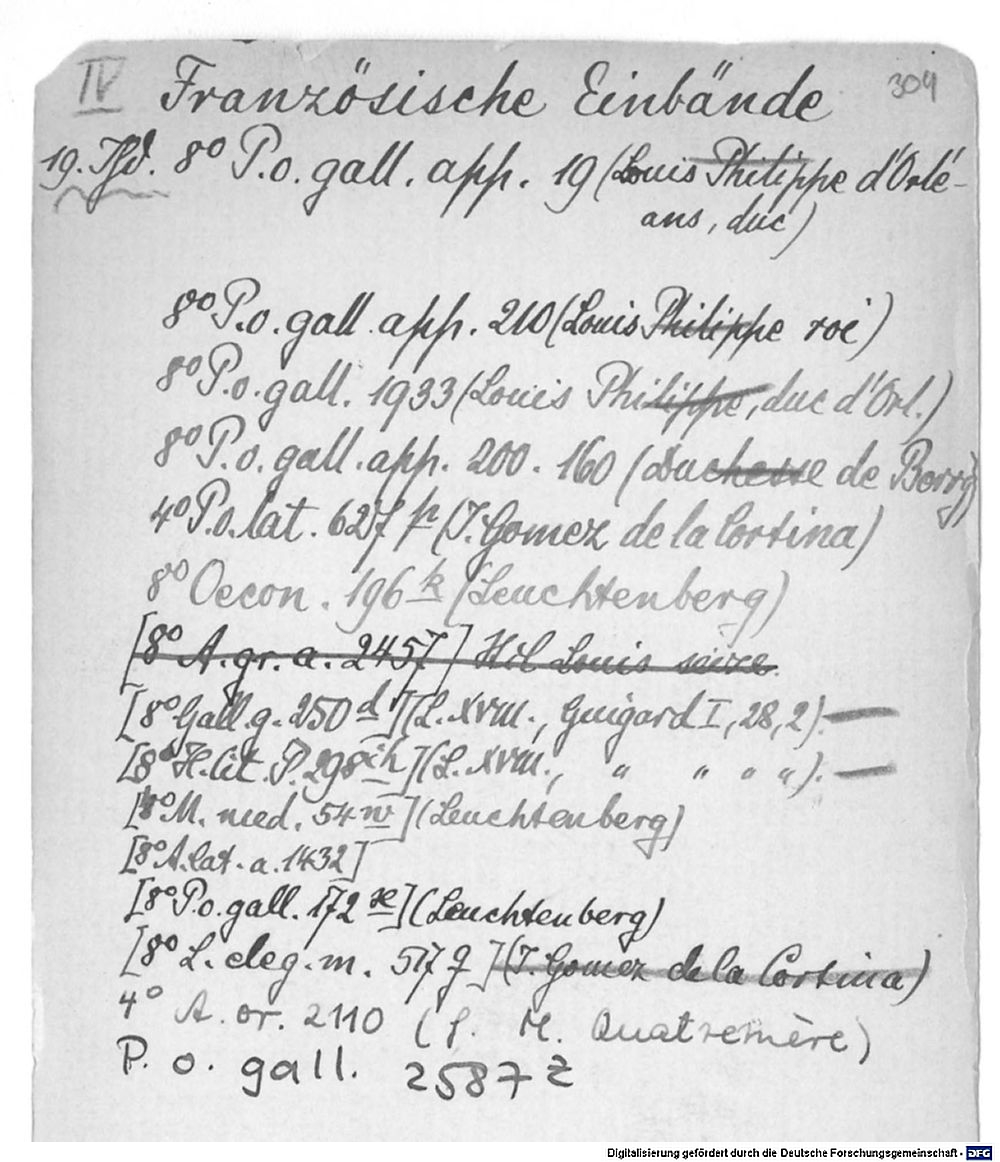 IV Französische Einbände 304
19. Jhd. 8° P.o. gall. app. 19 (Louis Philippe d'Orlé-
ans, duc)
8° P.o. gall. app. 210 (Louis Philippe roi)
8° P.o. gall. 1933 (Louis Philippe, duc d'Orl.)
8° P.o. gall. app. 200. 160 (Duchesse de Berry)
4° P.o. lat. 627 p (J. Gomez de la Cortina)
8° Oecon. 196 k (Leuchtenberg)
[8° A. gr. a. 2457] Louis seize.
[8° Gall. g. 250 d] (L. XVIII., Guigard I, 28, 2). —
[8° H. lit. P. 298 ih] (L. XVIII., " " " "). —
[8° M. med. 54 w] (Leuchtenberg)
[8° A. lat. a. 1432]
[8° P.o. gall. 172 x] (Leuchtenberg)
[8° L. eleg. m. 517 q] (J. Gomez de la Cortina)
4° A. or. 2110 (J. M. Quatremère)
P. o. gall. 2587 z
Digitalisierung gefördert durch die Deutsche Forschungsgemeinschaft - DFG